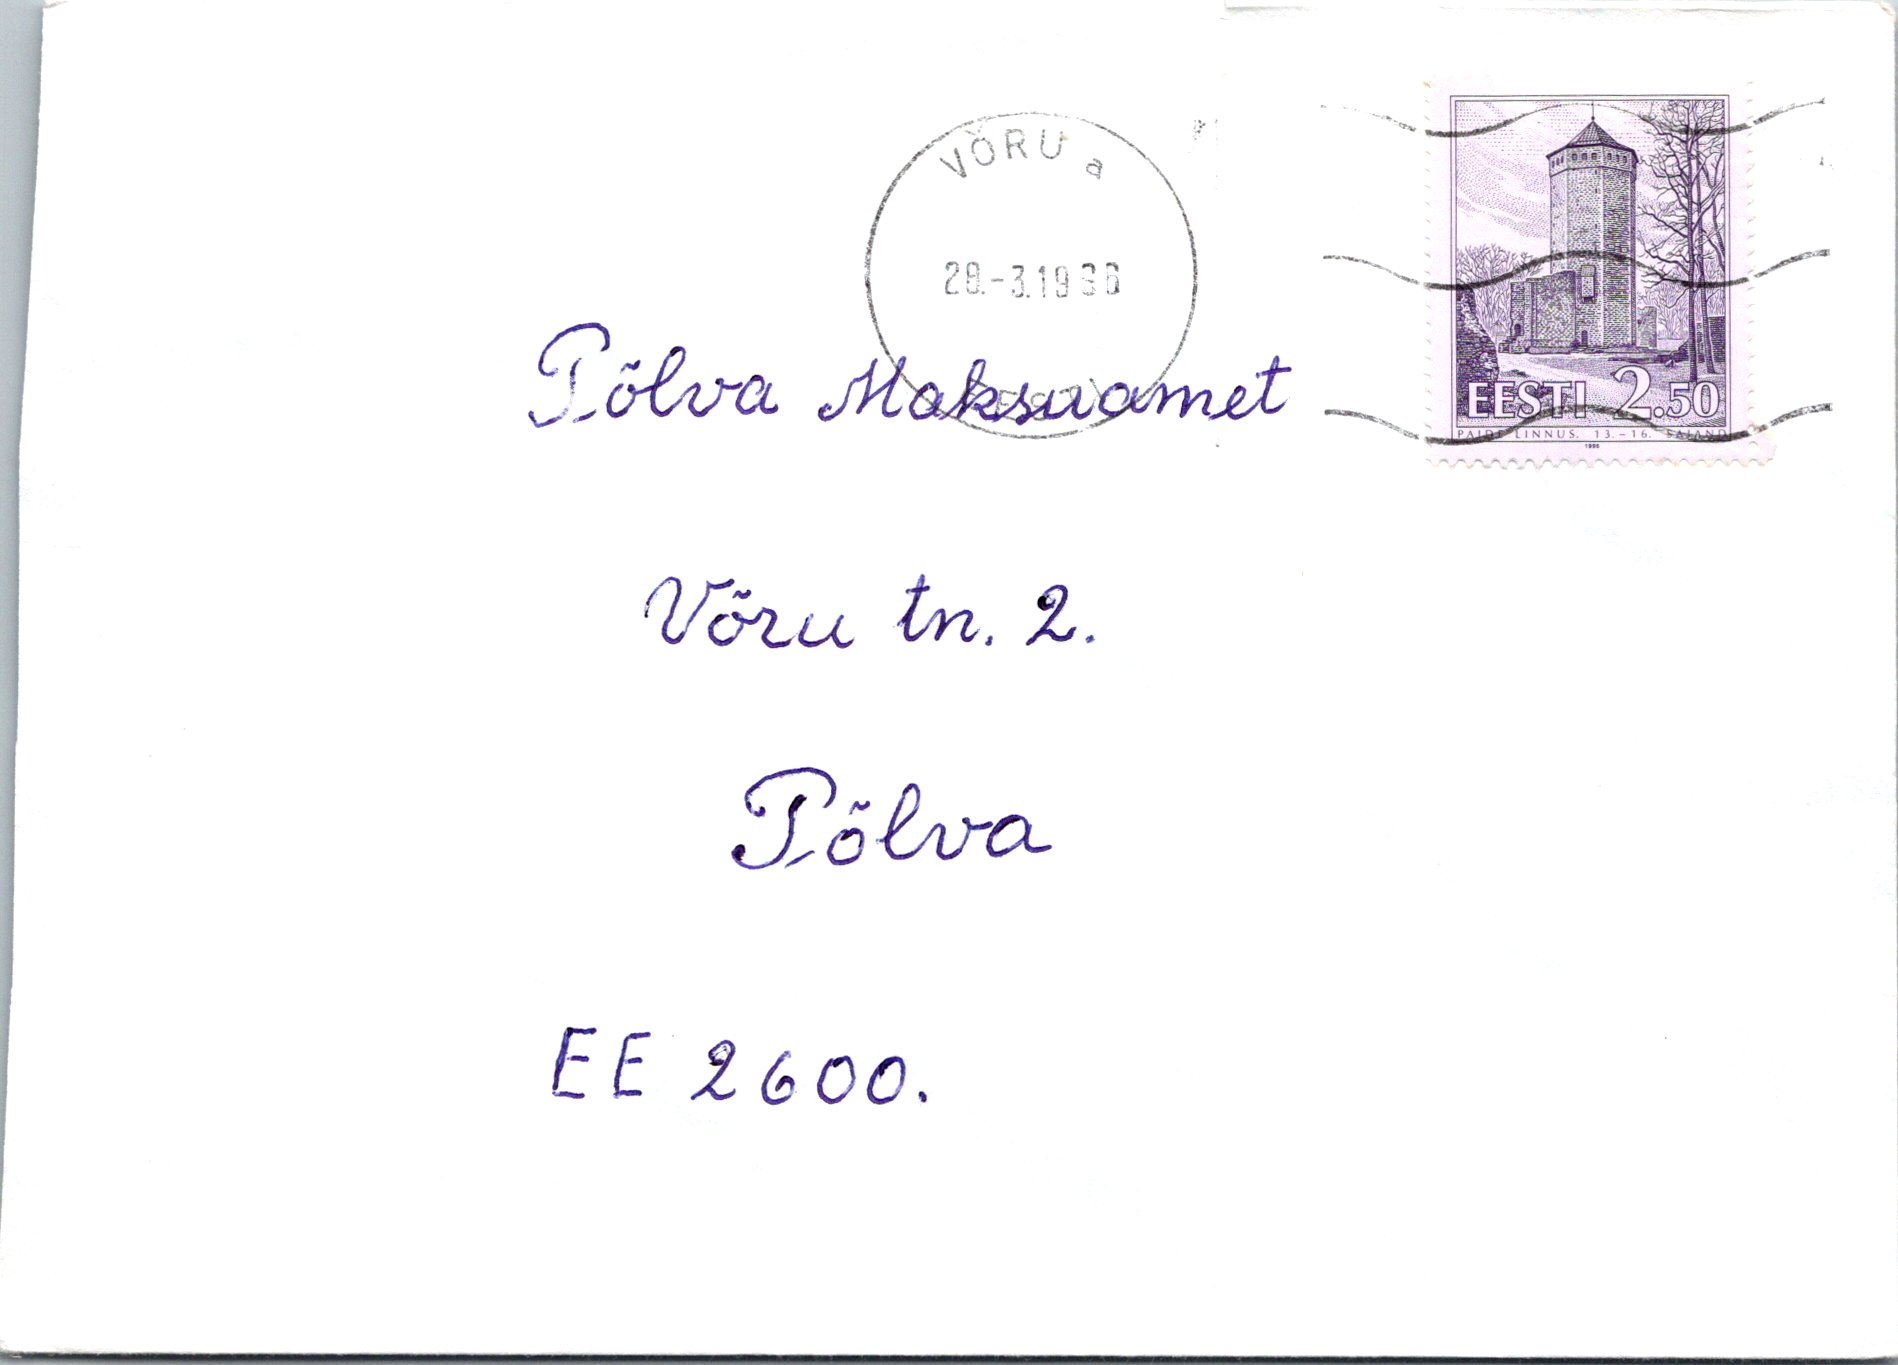 VÕRU a
28.-3.1996
EESTI
EESTI 2.50
PAIDE LINNUS. 13.-16. SAJAND
1996
Põlva Maksuamet
Võru tn. 2.
Põlva
EE 2600.